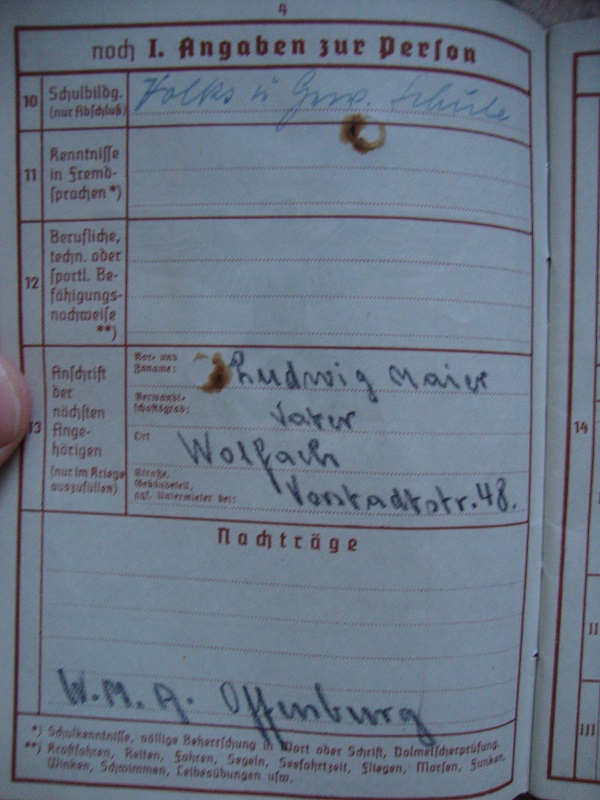 4
noch I. Angaben zur Person
10 Schulbildg. (nur Abschluß)
Volks u Gew. Schule
11 Kenntnisse in Fremdsprachen *)
12 Berufliche, techn. oder sportl. Befähigungsnachweise **)
13 Anschrift der nächsten Angehörigen (nur im Kriege auszufüllen)
Vor- und Zuname: Ludwig Maier
Verwandtschaftsgrad: Vater
Ort: Wolfach
Straße, Gebäudeteil, ggf. Untermieter bei: Vorstadtstr. 48.
Nachträge
W.M.A. Offenburg
*) Schulkenntnisse, völlige Beherrschung in Wort oder Schrift, Dolmetscherprüfung.
**) Kraftfahren, Reiten, Fahren, Segeln, Seefahrtzeit, Fliegen, Morsen, Funken,
Winken, Schwimmen, Leibesübungen usw.
14
II
III